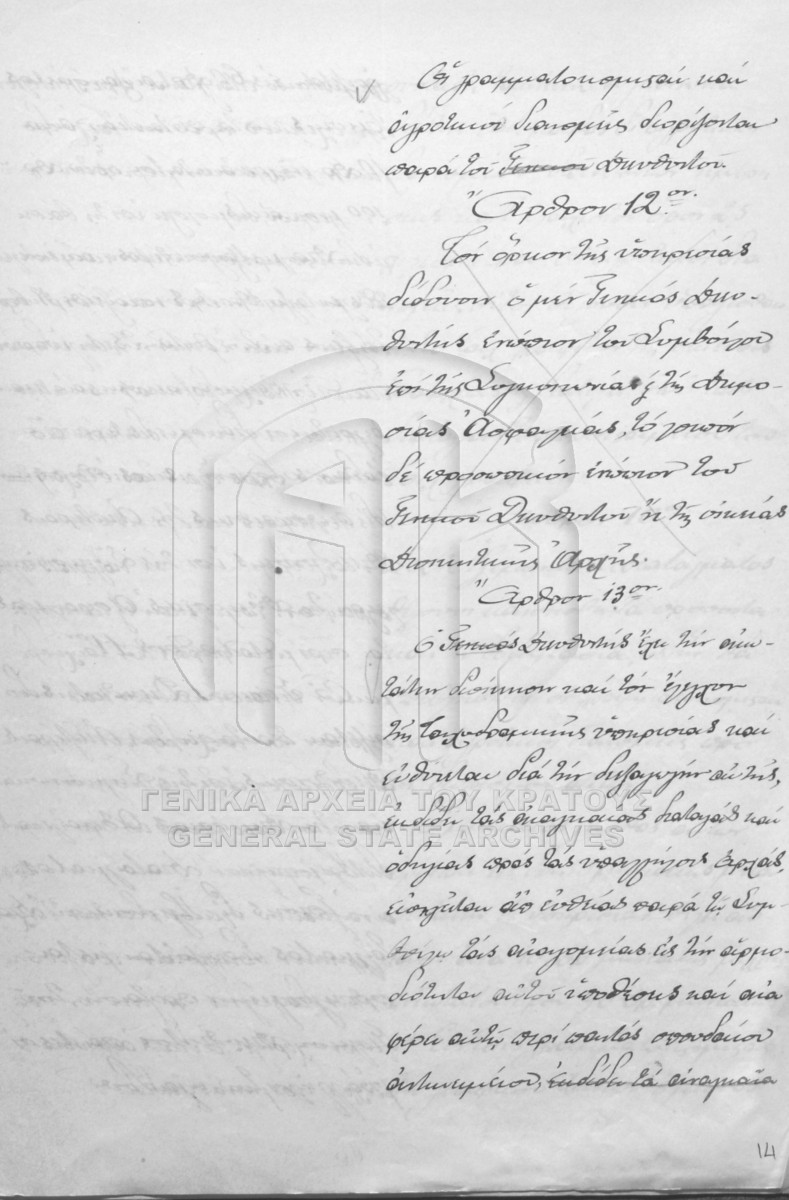 Οἱ γραμματοκομισταί καί
ἀγροτικοί διανομεῖς διορίζονται
παρά τοῦ Γενικοῦ Διευθυντοῦ.
Ἄρθρον 12ον.
Τόν ὅρκον τῆς ὑπηρεσίας
δίδουσιν ὁ μέν Γενικός Διευ-
θυντής ἐνώπιον τοῦ Συμβούλου
ἐπί τῆς Συγκοινωνίας & τῆς Δημο-
σίας Ἀσφαλείας, τό λοιπόν
δέ προσωπικόν ἐνώπιον τοῦ
Γενικοῦ Διευθυντοῦ ἤ τῆς οἰκείας
Διοικητικῆς Ἀρχῆς.
Ἄρθρον 13ον.
Ὁ Γενικός Διευθυντής ἔχει τήν ἀνω-
τάτην διοίκησιν καί τόν ἔλεγχον
τῆς Ταχυδρομικῆς ὑπηρεσίας καί
εὐθύνεται διά τήν διεξαγωγήν αὐτῆς,
ἐκδίδει τάς ἀναγκαίας διαταγάς καί
ὁδηγίας πρός τάς ὑπαλλήλους ἀρχάς,
εἰσηγεῖται ἀπ' εὐθείας παρά τῷ Συμ-
βούλῳ τάς ἀναγομένας εἰς τήν ἁρμο-
διότητα αὐτοῦ ὑποθέσεις καί ἀνα
φέρει αὐτῷ περί παντός σπουδαίου
ἀντικειμένου, ἐκδίδει τά ἀναγκαῖα
14
ΓΕΝΙΚΑ ΑΡΧΕΙΑ ΤΟΥ ΚΡΑΤΟΥΣ
GENERAL STATE ARCHIVES